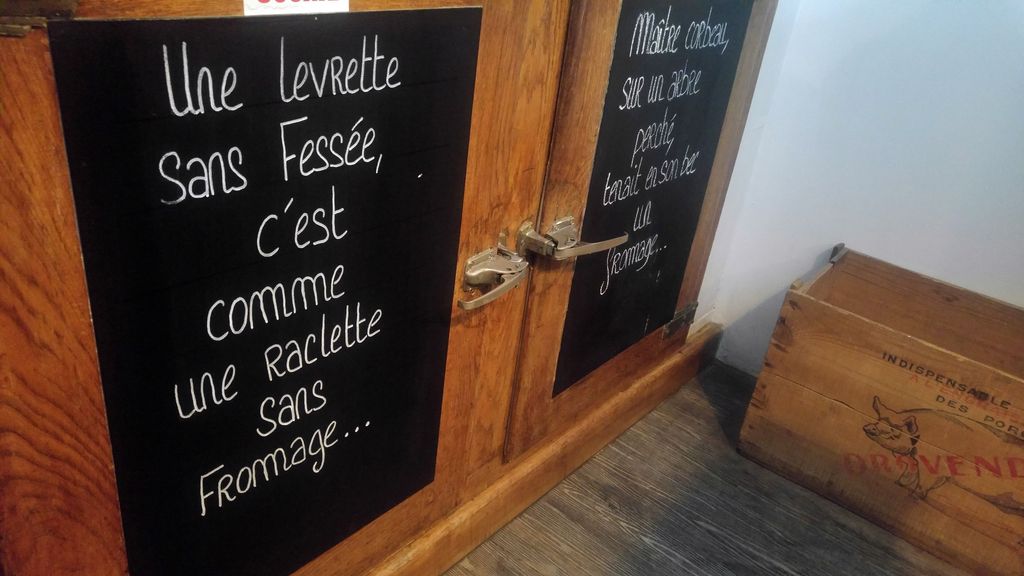 Une levrette
sans Fessée,
c'est
comme
une Raclette
sans
Fromage...
Maître corbeau,
sur un arbre
perché,
tenait en son bec
un
fromage...
INDISPENSABLE
DES